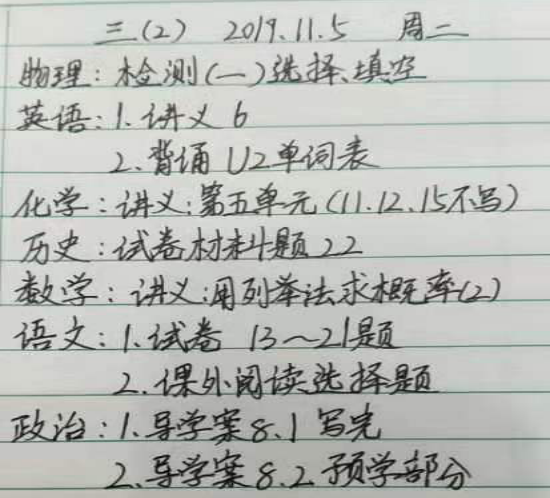 三(2) 2019.11.5 周二
物理:检测(一)选择、填空
英语:1.讲义6
2.背诵U2单词表
化学:讲义:第五单元(11.12.15不写)
历史:试卷材料题22
数学:讲义:用列举法求概率(2)
语文:1.试卷 13～21题
2.课外阅读选择题
政治:1.导学案8.1写完
2.导学案8.2预学部分